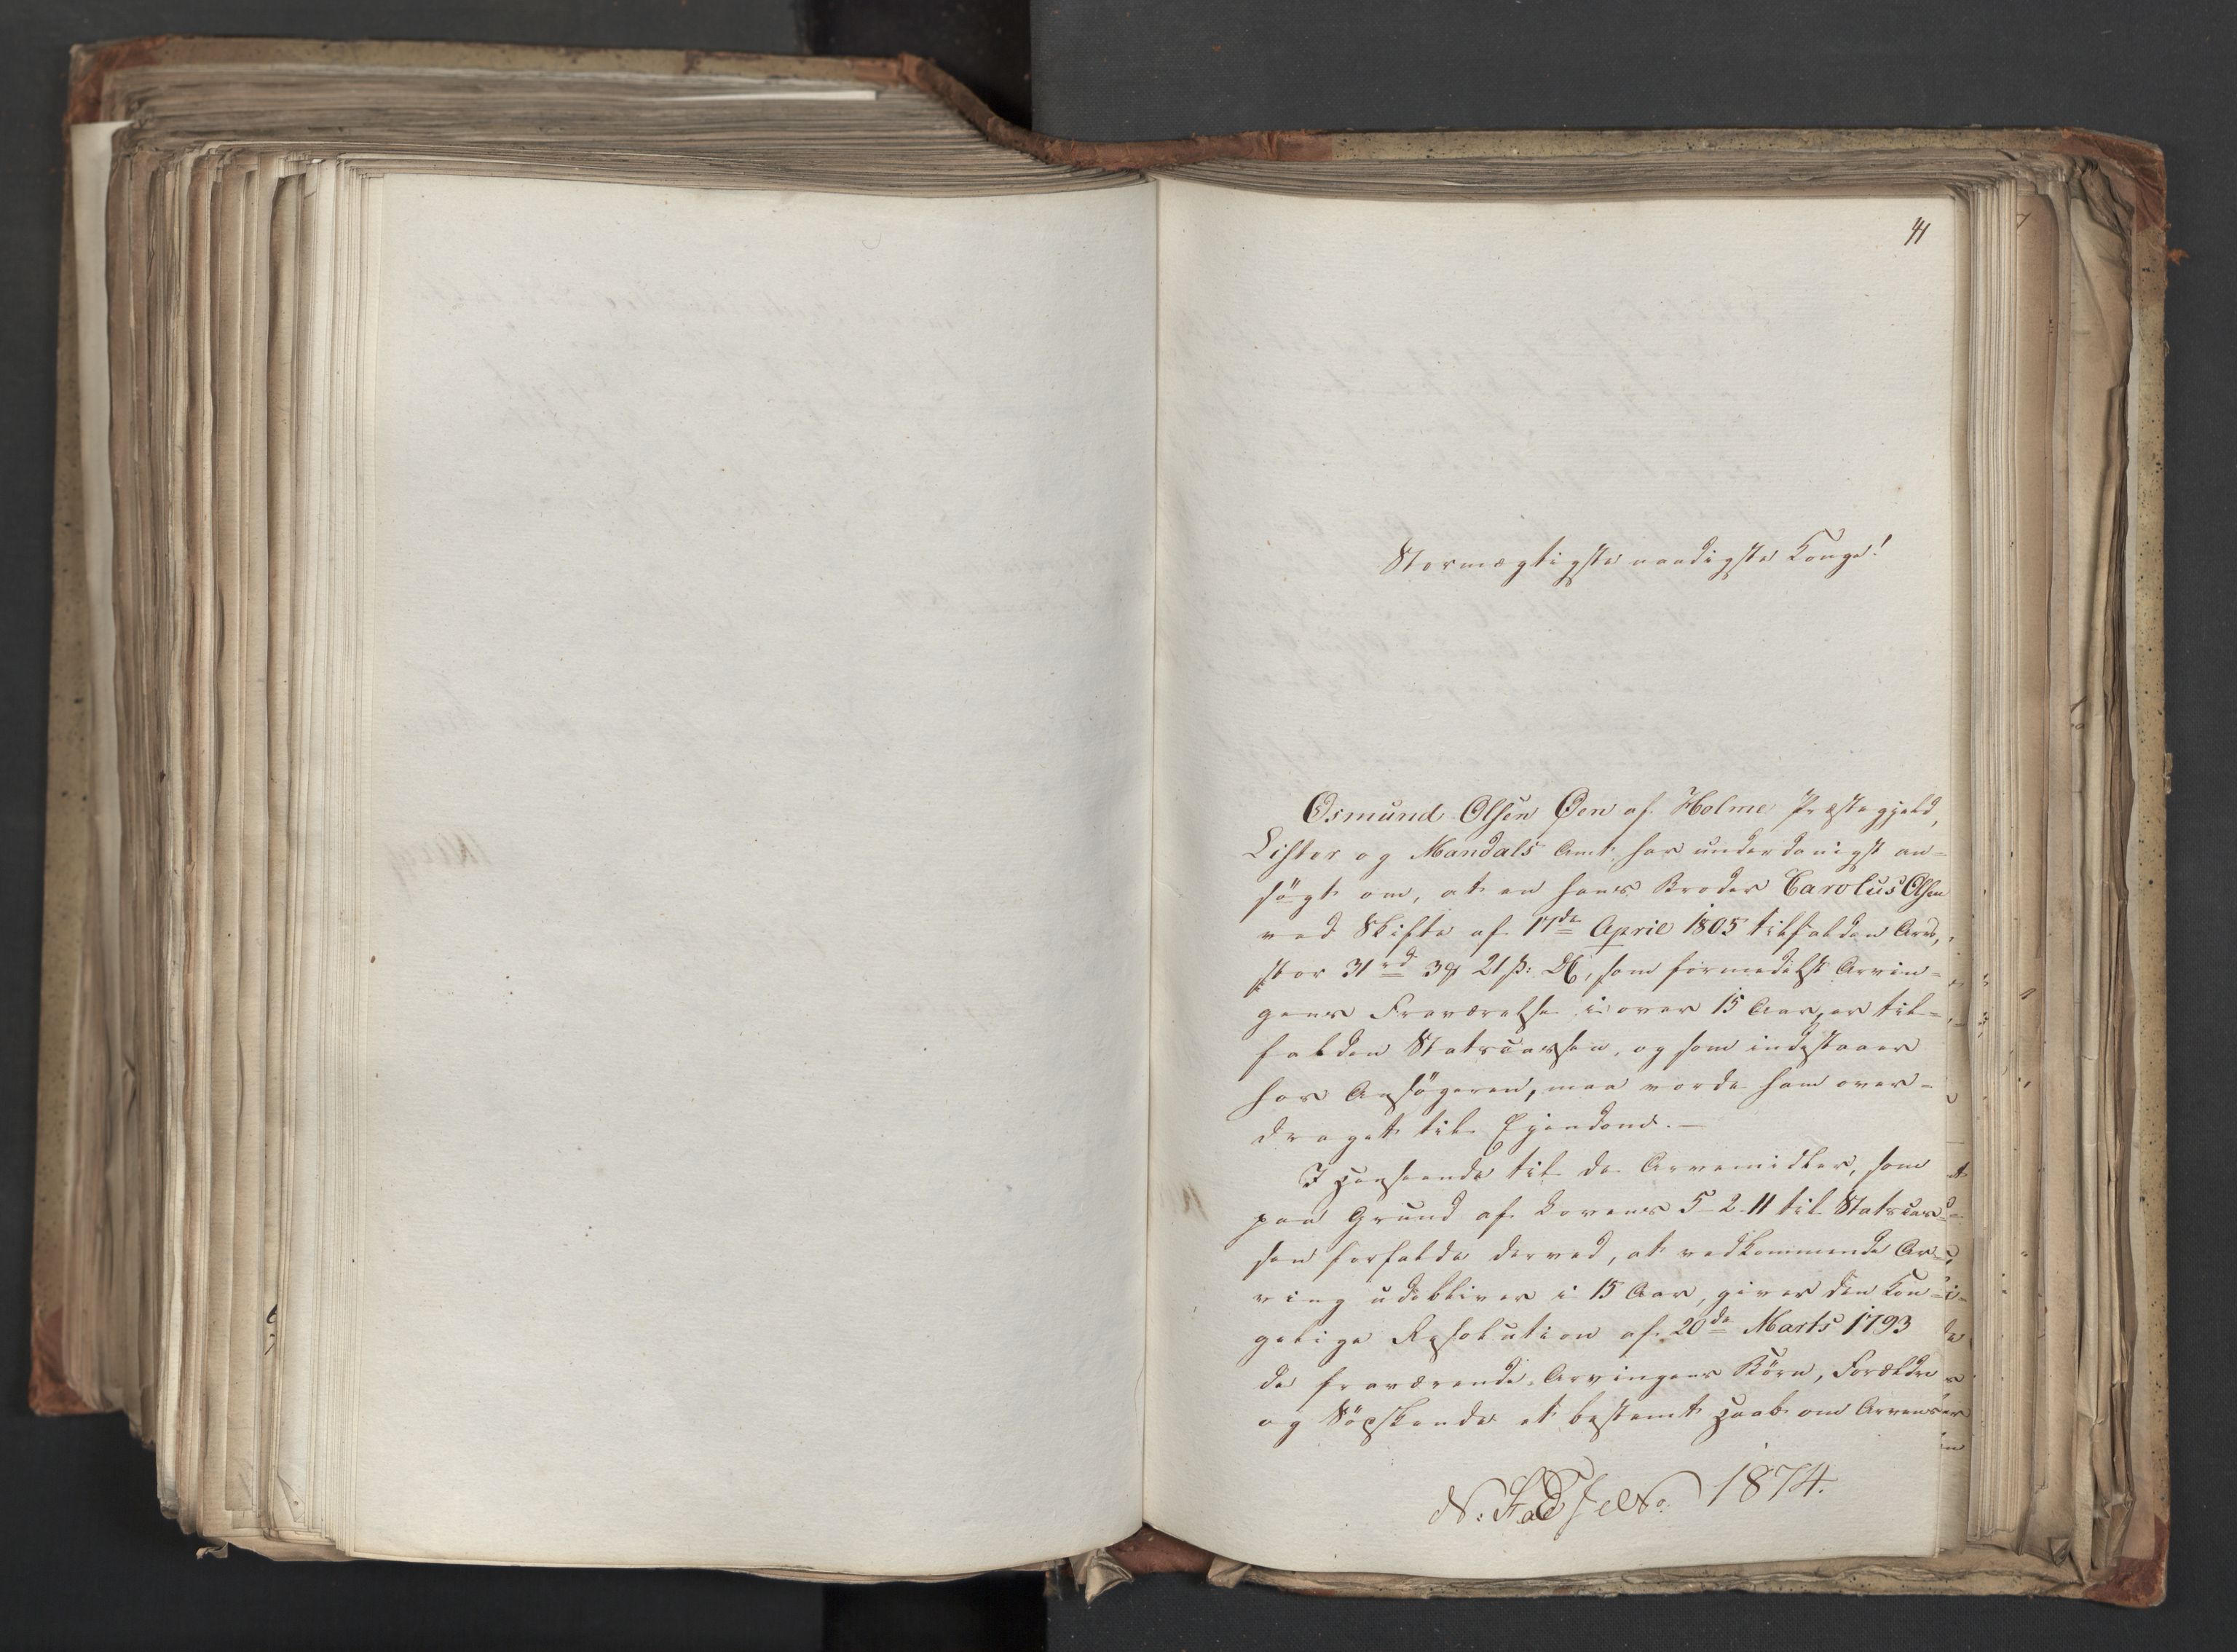 41
Stormægtigste naadigste Konge!
Osmund Olsen Øen af Holme Præstegjeld,
Lister og Mandals Amt har underdanigst an-
søgt om, at en hans Broder Carolus Olsen
ved Skifte af 17de April 1805 tilfalden Arv,
stor 31 rd 3 21 ß:, som formedelst Arvin-
gens Fraværelse i over 15 Aar, er til-
falden Statscassen, og som indestaaer
hos Ansøgeren, maa vorde ham over-
draget til Ejendom. —
I Henseende til de Arvemidler, som
paa Grund af Lovens 5-2-11 til Statscas-
sen forfalde derved, at vedkommende Ar-
ving udebliver i 15 Aar, giver den Kon-
gelige Resolution af 20de Marts 1793
de fraværende Arvingers Børn, Forældre
og Søskende et bestemt Haab om Arvens
1874.